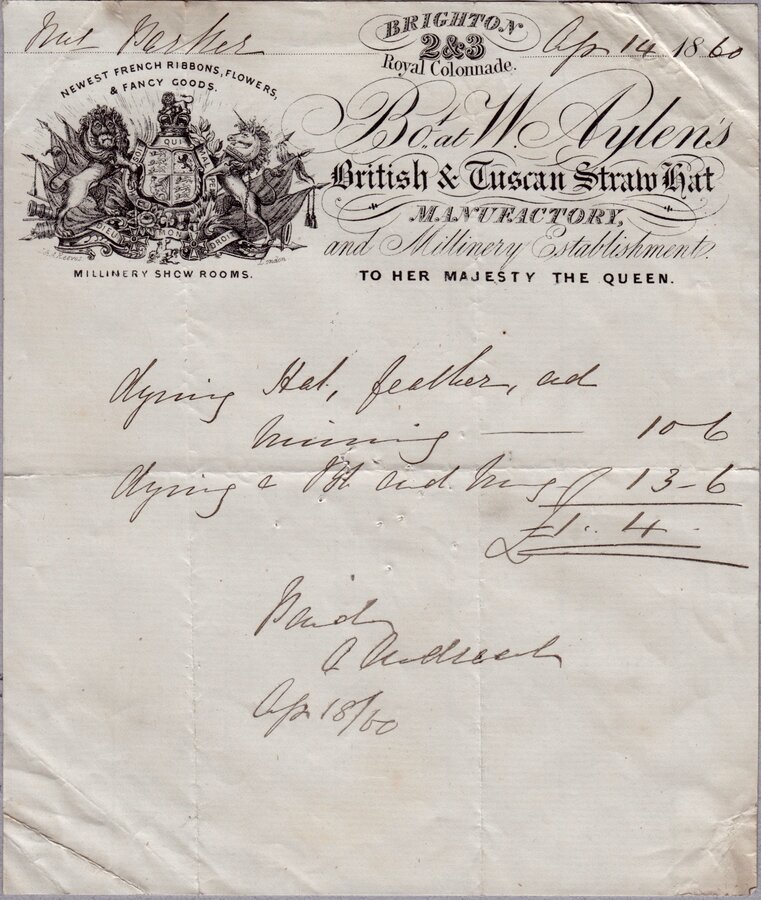 BRIGHTON
2 & 3
Royal Colonnade.
Parker
Ap 14 1860
NEWEST FRENCH RIBBONS, FLOWERS,
& FANCY GOODS.
Bot. at W. Aylen's
British & Tuscan Straw Hat
MANUFACTORY,
and Millinery Establishment.
QUI MAL
DIEU MON DROIT
London
MILLINERY SHOW ROOMS.
TO HER MAJESTY THE QUEEN.
dying Hat, feather, and
10 6
dying a and 13-6
£1. 4
Paid
Ap 18/60